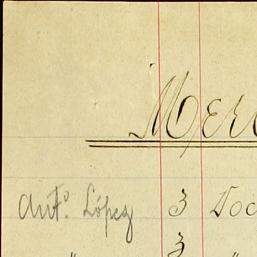 Mer
Antº. López 3 Doc
" 3 "